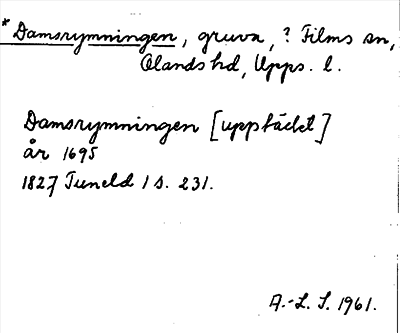 *Damsrymningen, gruva, ? Films sn,
Olands hd, Upps. l.
Damsrymningen [upptäckt]
år 1695
1827 Tuneld 1 s. 231.
A.-L. S. 1961.